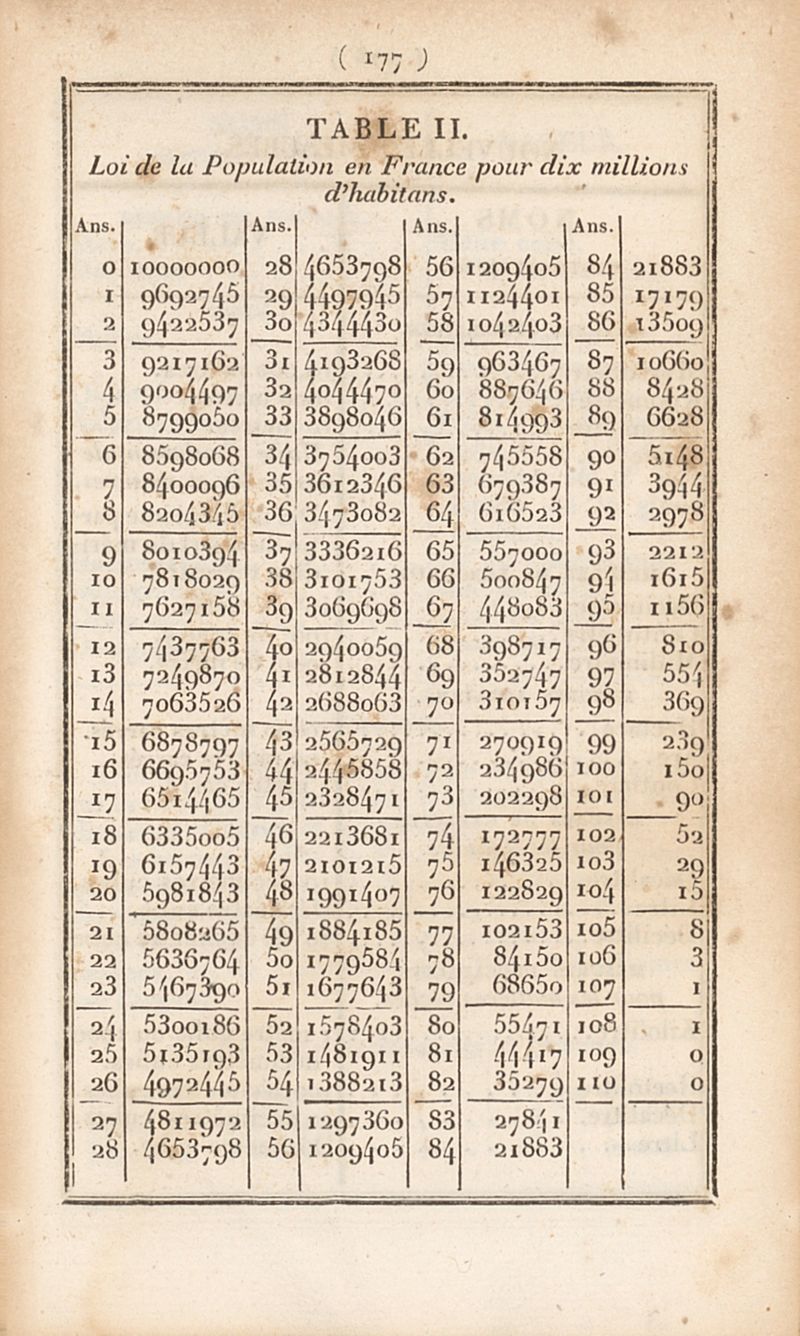 ( 177 )
TABLE II.
Loi de la Population en France pour dix millions
d'habitans.
Ans. Ans. Ans. Ans.
0 10000000 28 4653798 56 1209405 84 21883
1 9692745 29 4497945 57 1124401 85 17179
2 9422537 30 4344430 58 1042403 86 13509
3 9217162 31 4193268 59 963467 87 10660
4 9004497 32 4044470 60 887646 88 8428
5 8799050 33 3898046 61 814993 89 6628
6 8598068 34 3754003 62 745558 90 5148
7 8400096 35 3612346 63 679387 91 3944
8 8204345 36 3473082 64 616523 92 2978
9 8010394 37 3336216 65 557000 93 2212
10 7818029 38 3101753 66 500847 94 1615
11 7627158 39 3069698 67 448083 95 1156
12 7437763 40 2940059 68 398717 96 810
13 7249870 41 2812844 69 352747 97 554
14 7063526 42 2688063 70 310157 98 369
15 6878797 43 2565729 71 270919 99 239
16 6695753 44 2445858 72 234986 100 150
17 6514465 45 2328471 73 202298 101 90
18 6335005 46 2213681 74 172777 102 52
19 6157443 47 2101215 75 146325 103 29
20 5981843 48 1991407 76 122829 104 15
21 5808265 49 1884185 77 102153 105 8
22 5636764 50 1779584 78 84150 106 3
23 5467390 51 1677643 79 68650 107 1
24 5300186 52 1578403 80 55471 108 1
25 5135193 53 1481911 81 44417 109 0
26 4972445 54 1388213 82 35279 110 0
27 4811972 55 1297360 83 27841
28 4653798 56 1209405 84 21883